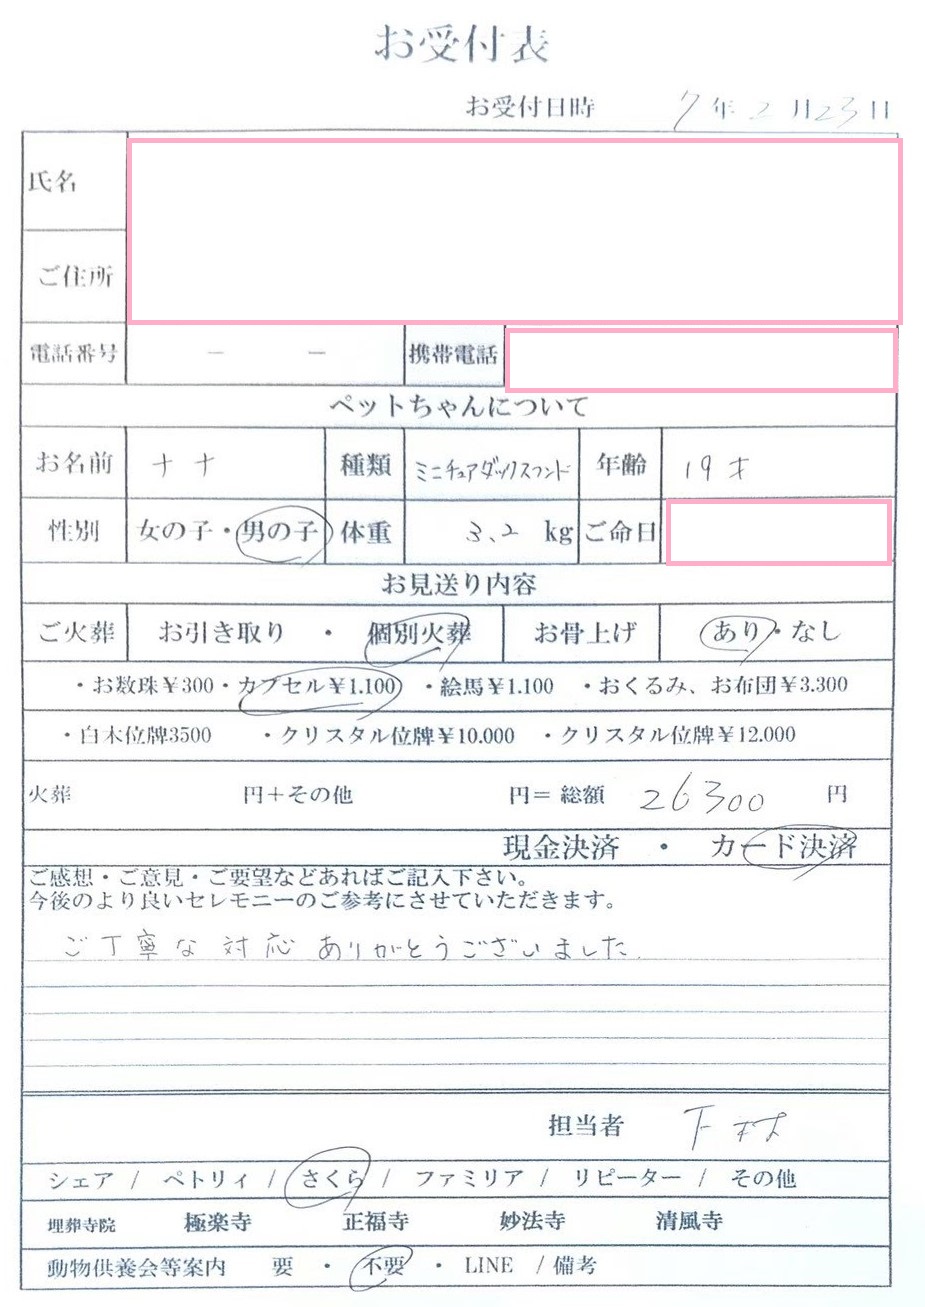 お受付表
お受付日時 7年2月23日
氏名
ご住所
電話番号 ー ー 携帯電話
ペットちゃんについて
お名前 ナナ 種類 ミニチュアダックスフンド 年齢 19才
性別 女の子・男の子 体重 3.2 kg ご命日
お見送り内容
ご火葬 お引き取り ・ 個別火葬 お骨上げ あり・なし
・お数珠¥300・カプセル¥1.100 ・絵馬¥1.100 ・おくるみ、お布団¥3.300
・白木位牌3500 ・クリスタル位牌¥10.000 ・クリスタル位牌¥12.000
火葬 円+その他 円= 総額 26300 円
現金決済 ・ カード決済
ご感想・ご意見・ご要望などあればご記入下さい。
今後のより良いセレモニーのご参考にさせていただきます。
ご丁寧な対応ありがとうございました。
担当者 下村
シェア / ペトリィ / さくら / ファミリア / リピーター / その他
埋葬寺院 極楽寺 正福寺 妙法寺 清風寺
動物供養会等案内 要 ・ 不要 ・ LINE / 備考